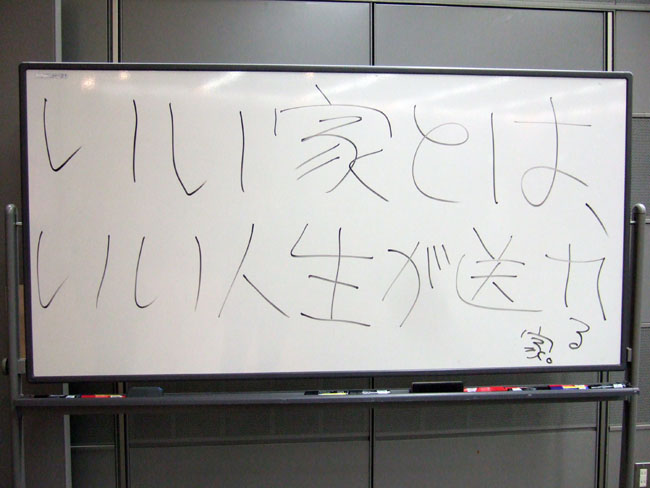 いい家とは、
いい人生が送れ
る
家。